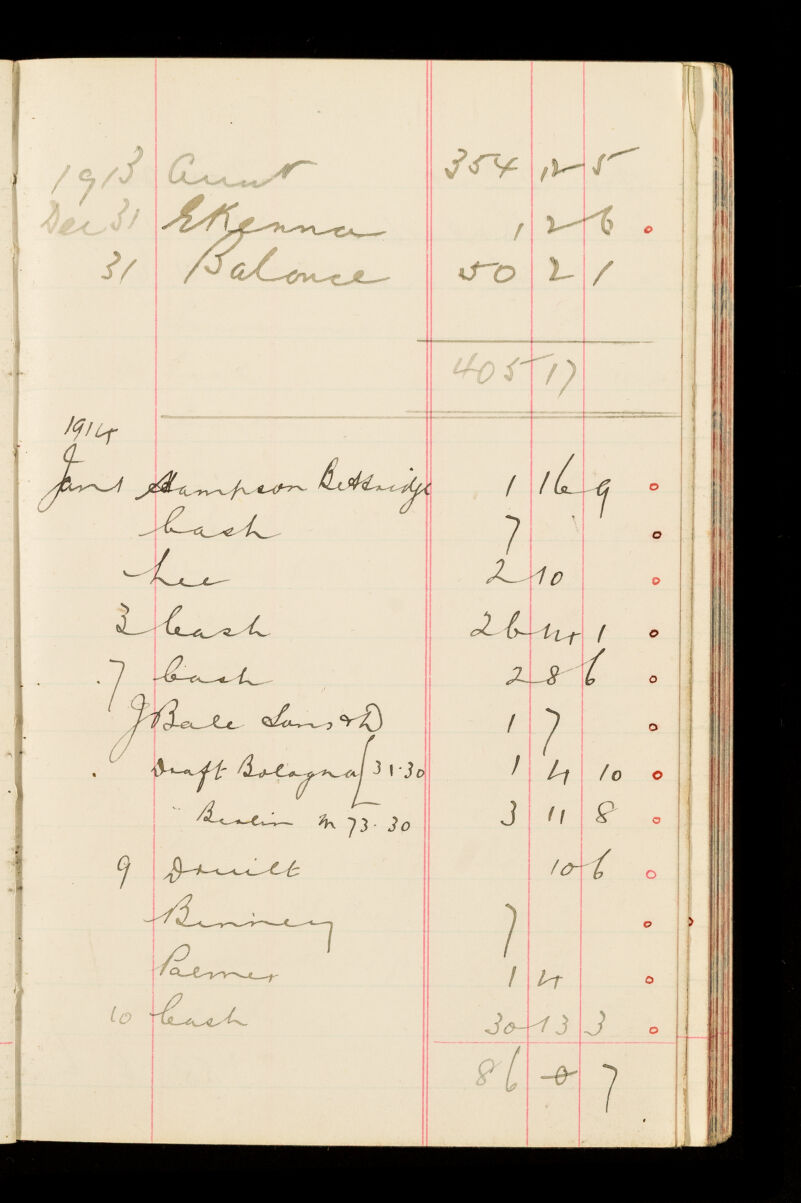 1913 Amnt 354 12 5
Dec 31 E Kenna 1 2 6
31 Balance 50 2 1
405 17
1914
Jan 1 Hampson Bettridge 1 16 9
Cash 7
Lee 2 10
3 Cash 26 14 1
7 Cash 2 8 6
J Bale Sons & D 1 7
Draft Bologna 31.30 1 4 10
" Berlin M 73.30 3 11 8
9 Druilt 10 6
Binney 7
Palmer 1 4
10 Cash 30 13 3
86 0 7